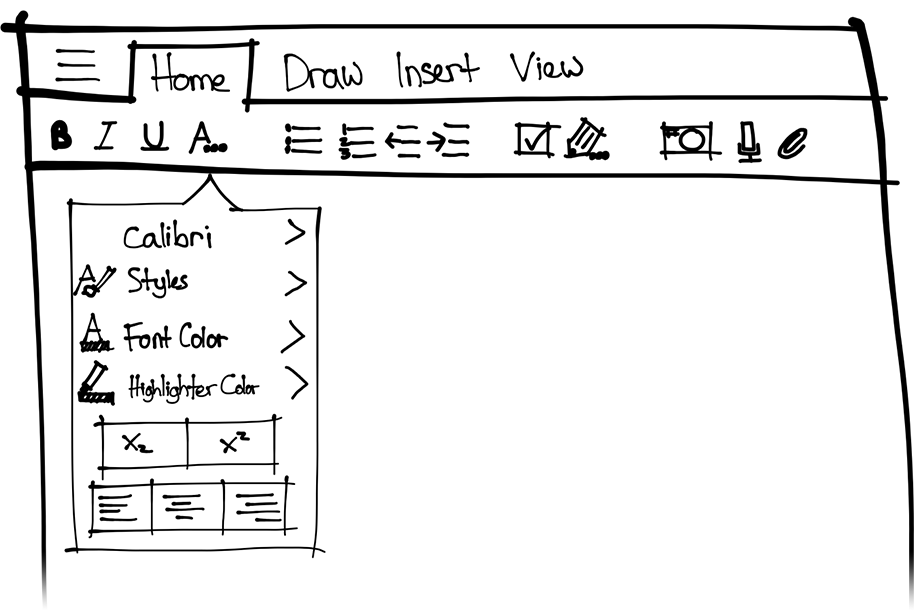 Home Draw Insert View
B I U A...
1
2
3
Calibri
A Styles
A Font Color
Highlighter Color
X₂ X²